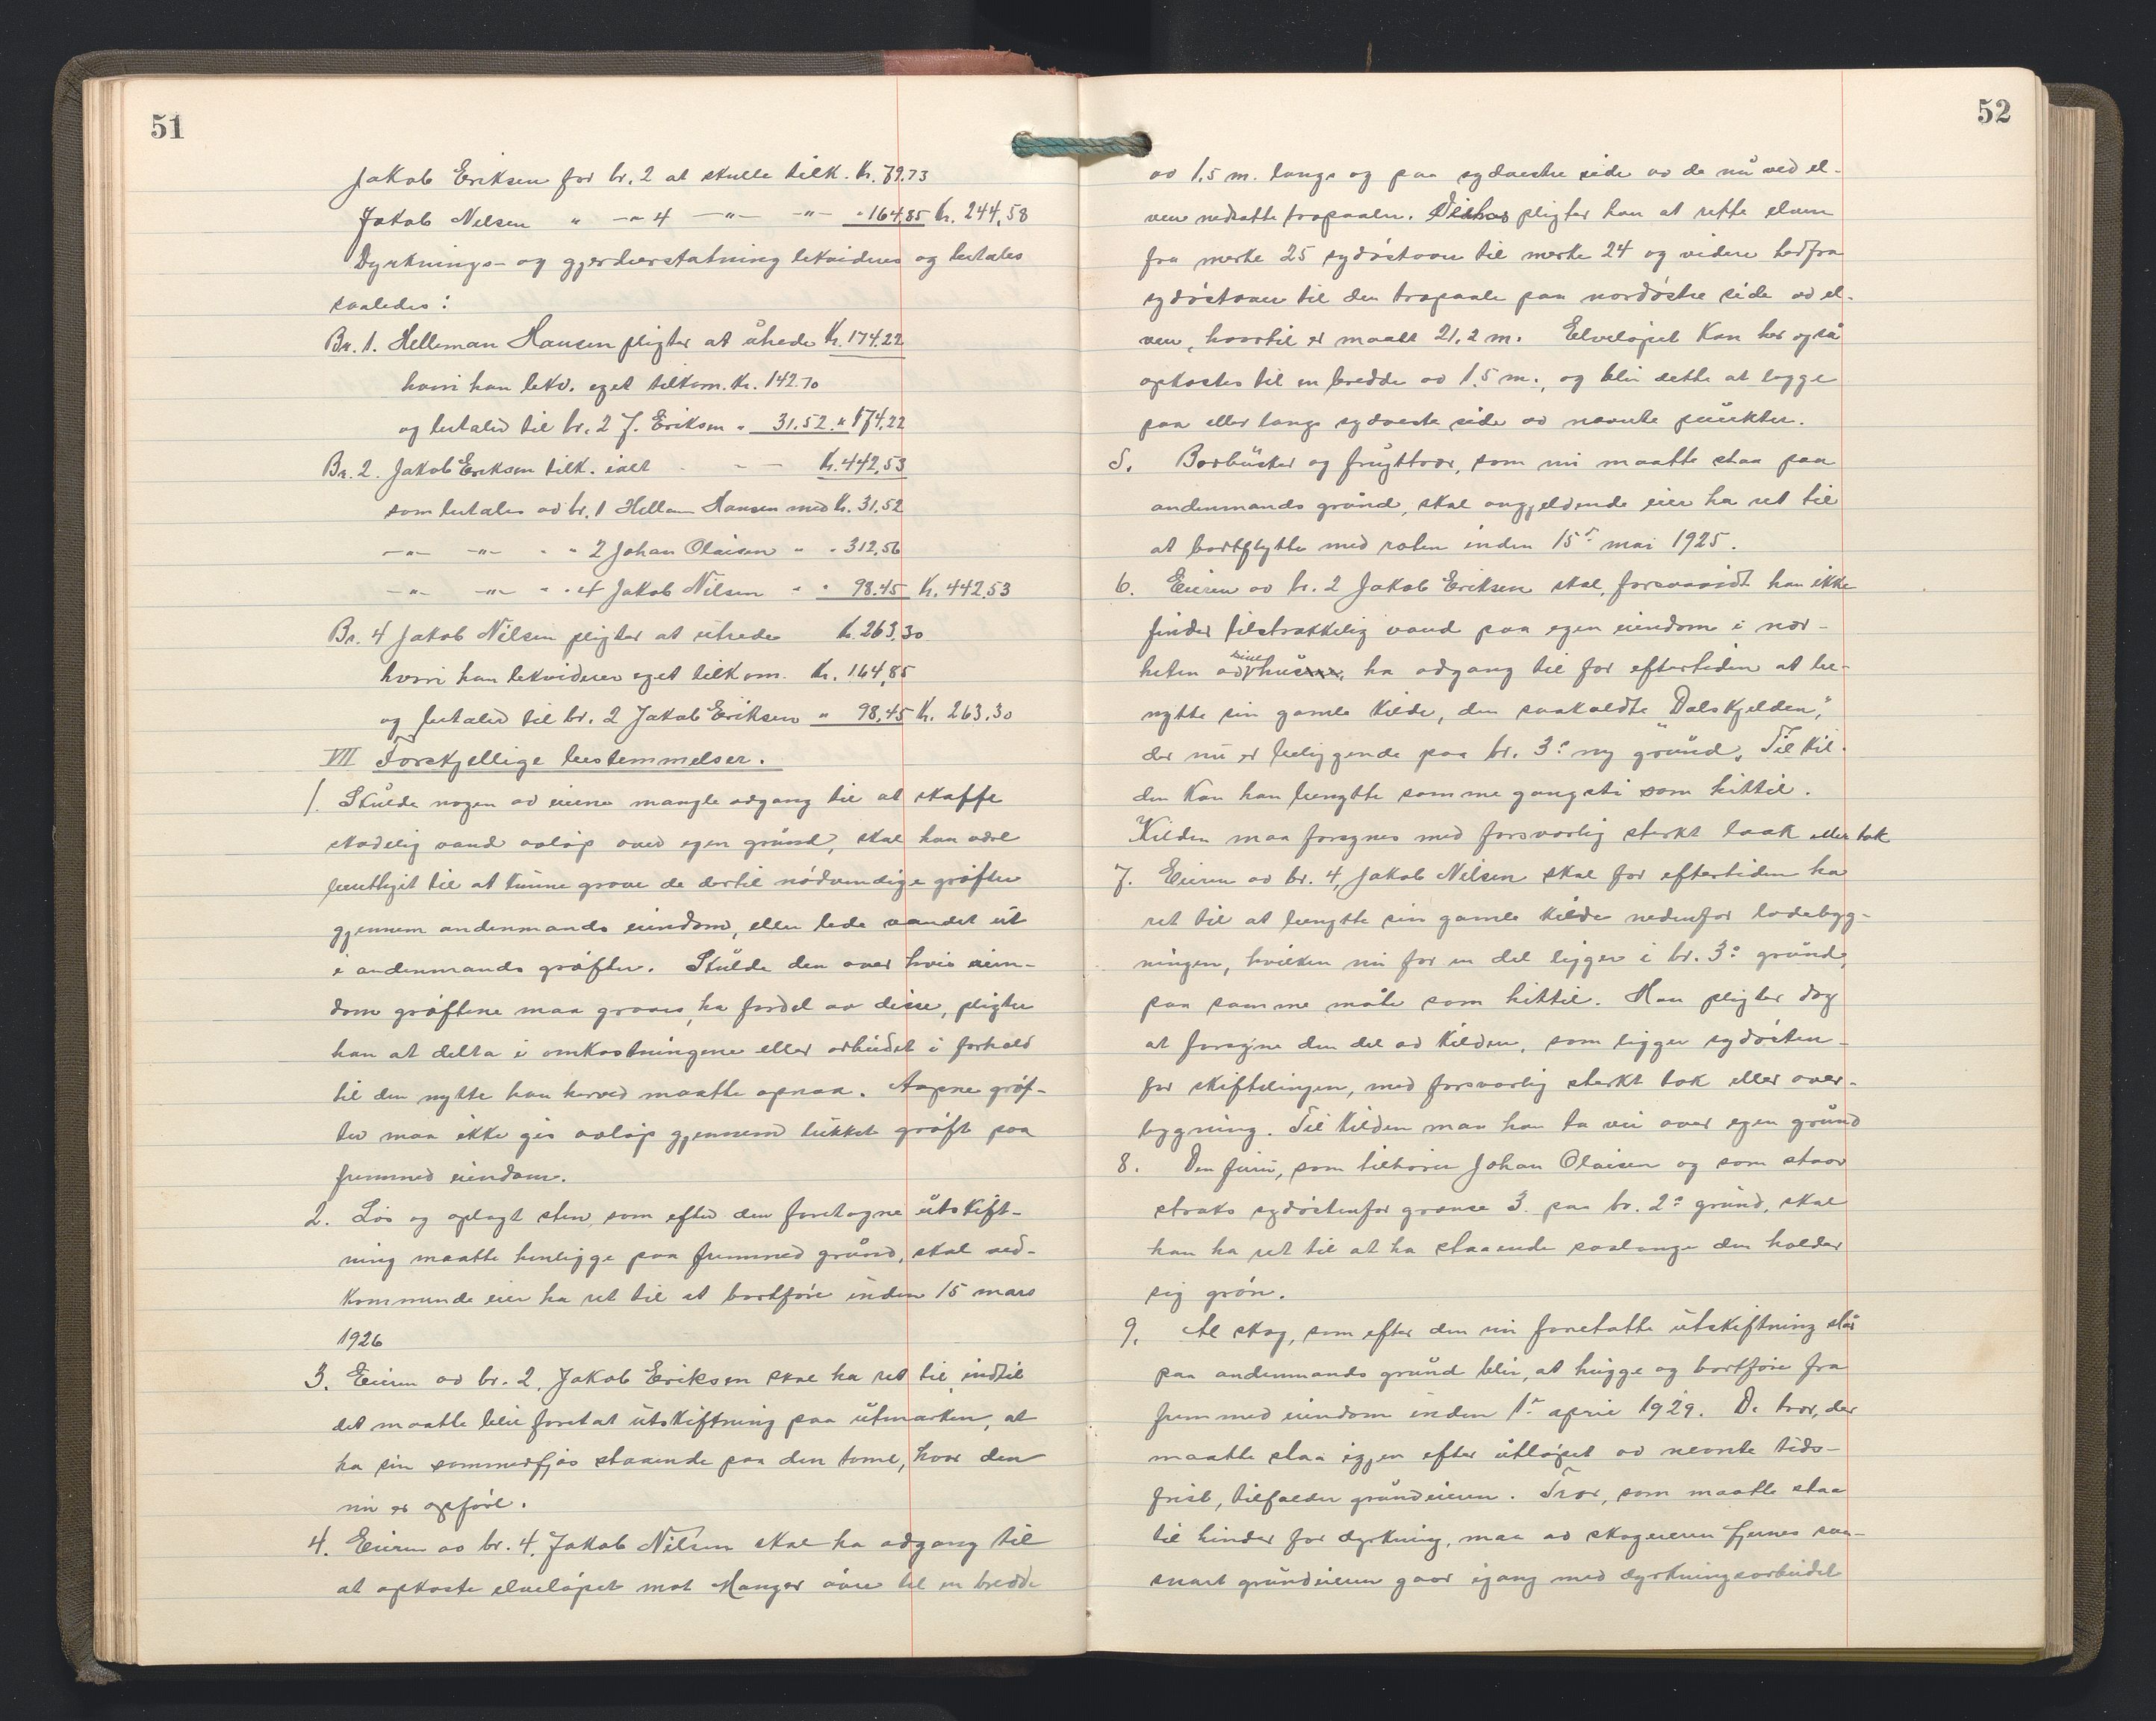 51
Jakob Eriksen for br. 2 at skulle tilk. kr. 79.73
Jakob Nilsen " -"- 4 -"- -"- " 164,85 kr. 244,58
Dyrknings- og gjerdeerstatning likvideres og betales
saaledes:
Br. 1. Helleman Hansen pligter at utrede kr. 174.22
hvori han likv. eget tilkom. kr. 142.70
og betaler til br. 2 J. Eriksen " 31.52 " 174,22
Br. 2. Jakob Eriksen tilk. ialt - - - kr. 442,53
som betales av br. 1 Hellem Hansen med kr. 31,52
-"- -"- " " 2 Johan Olaisen " " 312,56
-"- -"- " " 4 Jakob Nilsen " " 98.45 kr. 442,53
Br. 4 Jakob Nilsen pligter at utrede kr. 263,30
hvori han likviderer eget tilkom. kr. 164,85
og betaler til br. 2 Jakob Eriksen " 98,45 kr. 263.30
VII Forskjellige bestemmelser.
1. Skulde nogen av eierne mangle adgang til at skaffe
skadelig vand avløp over egen grund, skal han være
berettiget til at kunne grave de dertil nødvendige grøfter
gjennem andenmands eiendom, eller lede vandet ut
i andenmands grøfter. Skulde den over hvis eien-
dom grøftene maa graves, ha fordel av disse, pligter
han at delta i omkostningene eller arbeidet i forhold
til den nytte han herved maatte opnaa. Aapne grøf-
ter maa ikke gis avløp gjennem lukket grøft paa
fremmed eiendom.
2. Løs og oplagt sten, som efter den foretagne utskift-
ning maatte henligge paa fremmed grund, skal ved-
kommende eier ha ret til at bortføre inden 15 mars
1926
3. Eieren av br. 2, Jakob Eriksen skal ha ret til, indtil
det maatte bli foretat utskiftning paa utmarken, at
ha sin sommerfjøs staaende paa den tomt, hvor den
nu er opført.
4. Eieren av br. 4, Jakob Nilsen skal ha adgang til
at opkaste elveløpet mot Manger øvre til en bredde
52
av 1.5 m. langs og paa sydvestre side av de nu ved el-
ven nedsatte træpæler. Videre pligter han at rette elven
fra merke 25 sydøstover til merke 24 og videre herfra
sydøstover til den træpæle paa nordøstre side av el-
ven, hvortil er maalt 21,2 m. Elveløpet kan her også
opkastes til en bredde av 1.5 m., og blir dette at lægge
paa eller langs sydvestre side av nævnte punkter.
5. Bærbusker og frugttrær, som nu maatte staa paa
andenmands grund, skal angjeldende eier ha ret til
at bortflytte med roten inden 15de mai 1925.
6. Eieren av br. 2 Jakob Eriksen skal, forsaavidt han ikke
finder tilstrækkelig vand paa egen eiendom i nær-
heten av sine hus, ha adgang til for eftertiden at be-
nytte sin gamle kilde, den saakaldte "Dalskjelden",
der nu er beliggende paa br. 3s ny grund. Til kil-
den kan han benytte samme gangsti som hittil.
Kilden maa forsynes med forsvarlig sterkt laak eller tak
7. Eieren av br. 4, Jakob Nilsen skal for eftertiden ha
ret til at benytte sin gamle kilde nedenfor ladebyg-
ningen, hvilken nu for en del ligger i br. 3s grund,
paa samme måte som hittil. Han pligter dog
at forsyne den del av kilden, som ligger sydøsten-
for skiftelinjen, med forsvarlig sterkt tak eller over-
bygning. Til kilden maa han ta vei over egen grund
8. Den furu, som tilhører Johan Olaisen og som staar
straks sydøstenfor grense 3 paa br. 2s grund, skal
han ha ret til at ha staaende saalænge den holder
sig grøn.
9. Al skog, som efter den nu foretatte utskiftning står
paa andenmands grund blir, at hugge og bortføre fra
fremmed eiendom inden 1ste april 1929. De trær, der
maatte staa igjen efter utløpet av nevnte tids-
frist, tilfalder grundeieren. Trær, som maatte staa
til hinder for dyrkning, maa av skogeieren fjernes saa-
snart grundeieren gaar igang med dyrkningsarbeidet